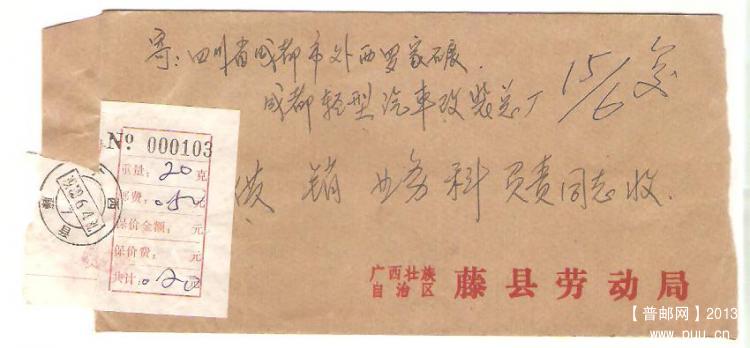 寄：四川省成都市外西罗家碾
成都轻型汽车改装总厂
15/6 交
供销业务科负责同志收.
№ 000103
重量：20克
邮费：.50元
保价金额：元
保价费：元
共计：元
藤县
广西壮族
自治区
藤县劳动局
【普邮网】2013
www.puu.cn